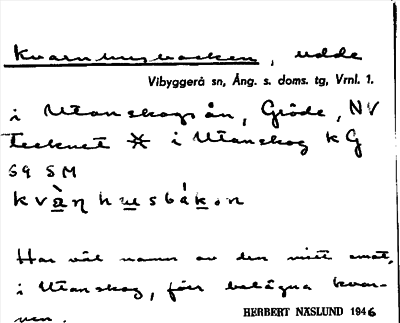 Kvarnhusbacken, udde
Vibyggerå sn, Ång. s. doms. tg, Vrnl. 1.
i Utanskogsån, Gröde, NV
tecknet ※ i Utanskog kG
59 5M
kvàn husbákən
Har väl namn av den mitt emot,
i Utanskog, förr belägna kvar-
nen.
HERBERT NÄSLUND 1946